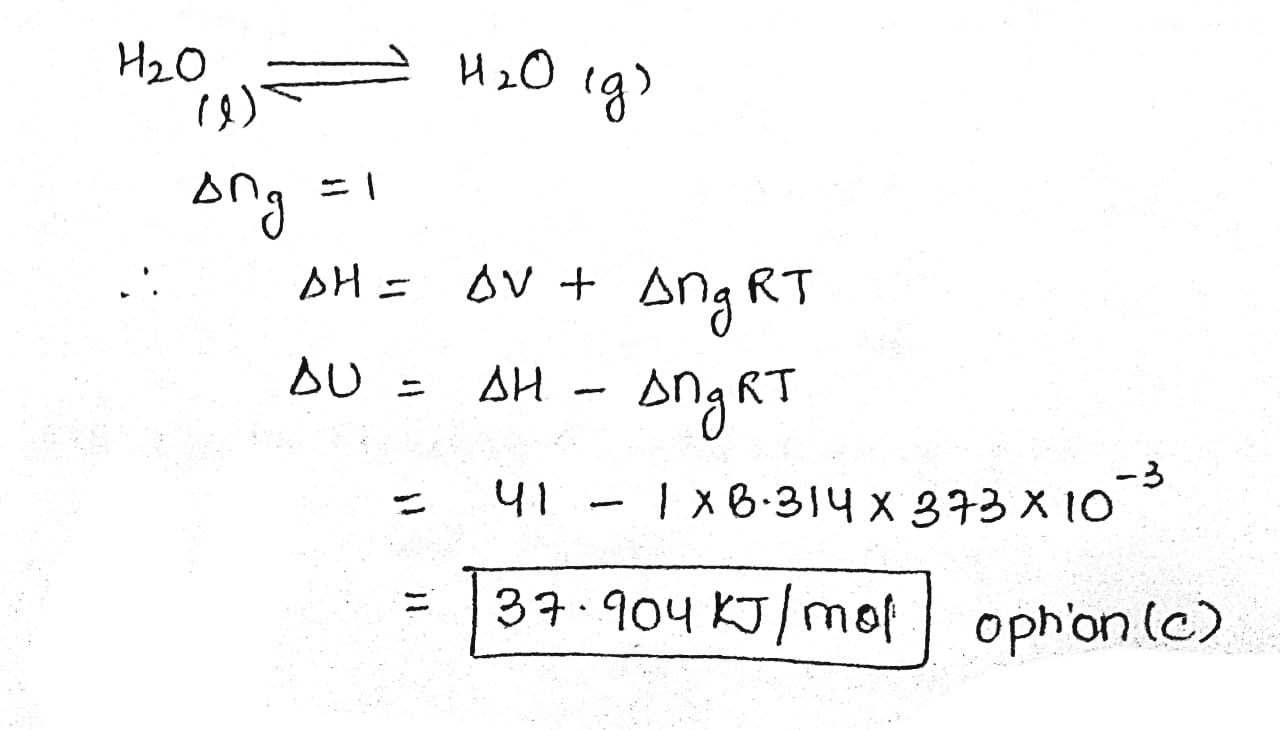 H₂O(l) ⇌ H₂O (g)
Δng = 1
∴ ΔH = ΔV + Δng RT
ΔU = ΔH − Δng RT
= 41 − 1 × 8.314 × 373 × 10⁻³
= 37.904 KJ/mol option (c)